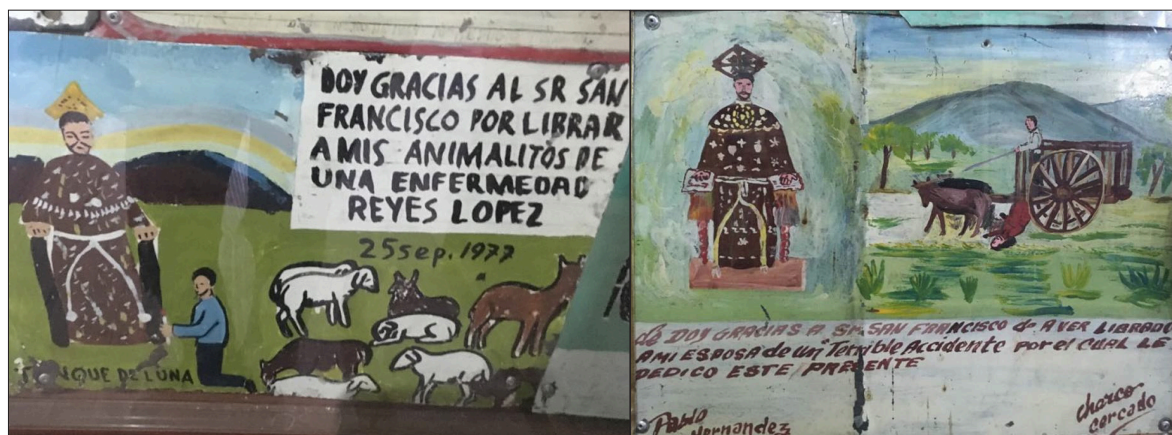 DOY GRACIAS AL SR SAN
FRANCISCO POR LIBRAR
A MIS ANIMALITOS DE
UNA ENFERMEDAD
REYES LOPEZ
25 sep. 1977
QUE DE LUNA
de DOY GRACIAS A SR SAN FRANCISCO de A VER LIBRADO
A MI ESPOSA de un Terrible Accidente por el CUAL LE
DEDICO ESTE PRESENTE
Pablo
Hernandez
Charco
cercado